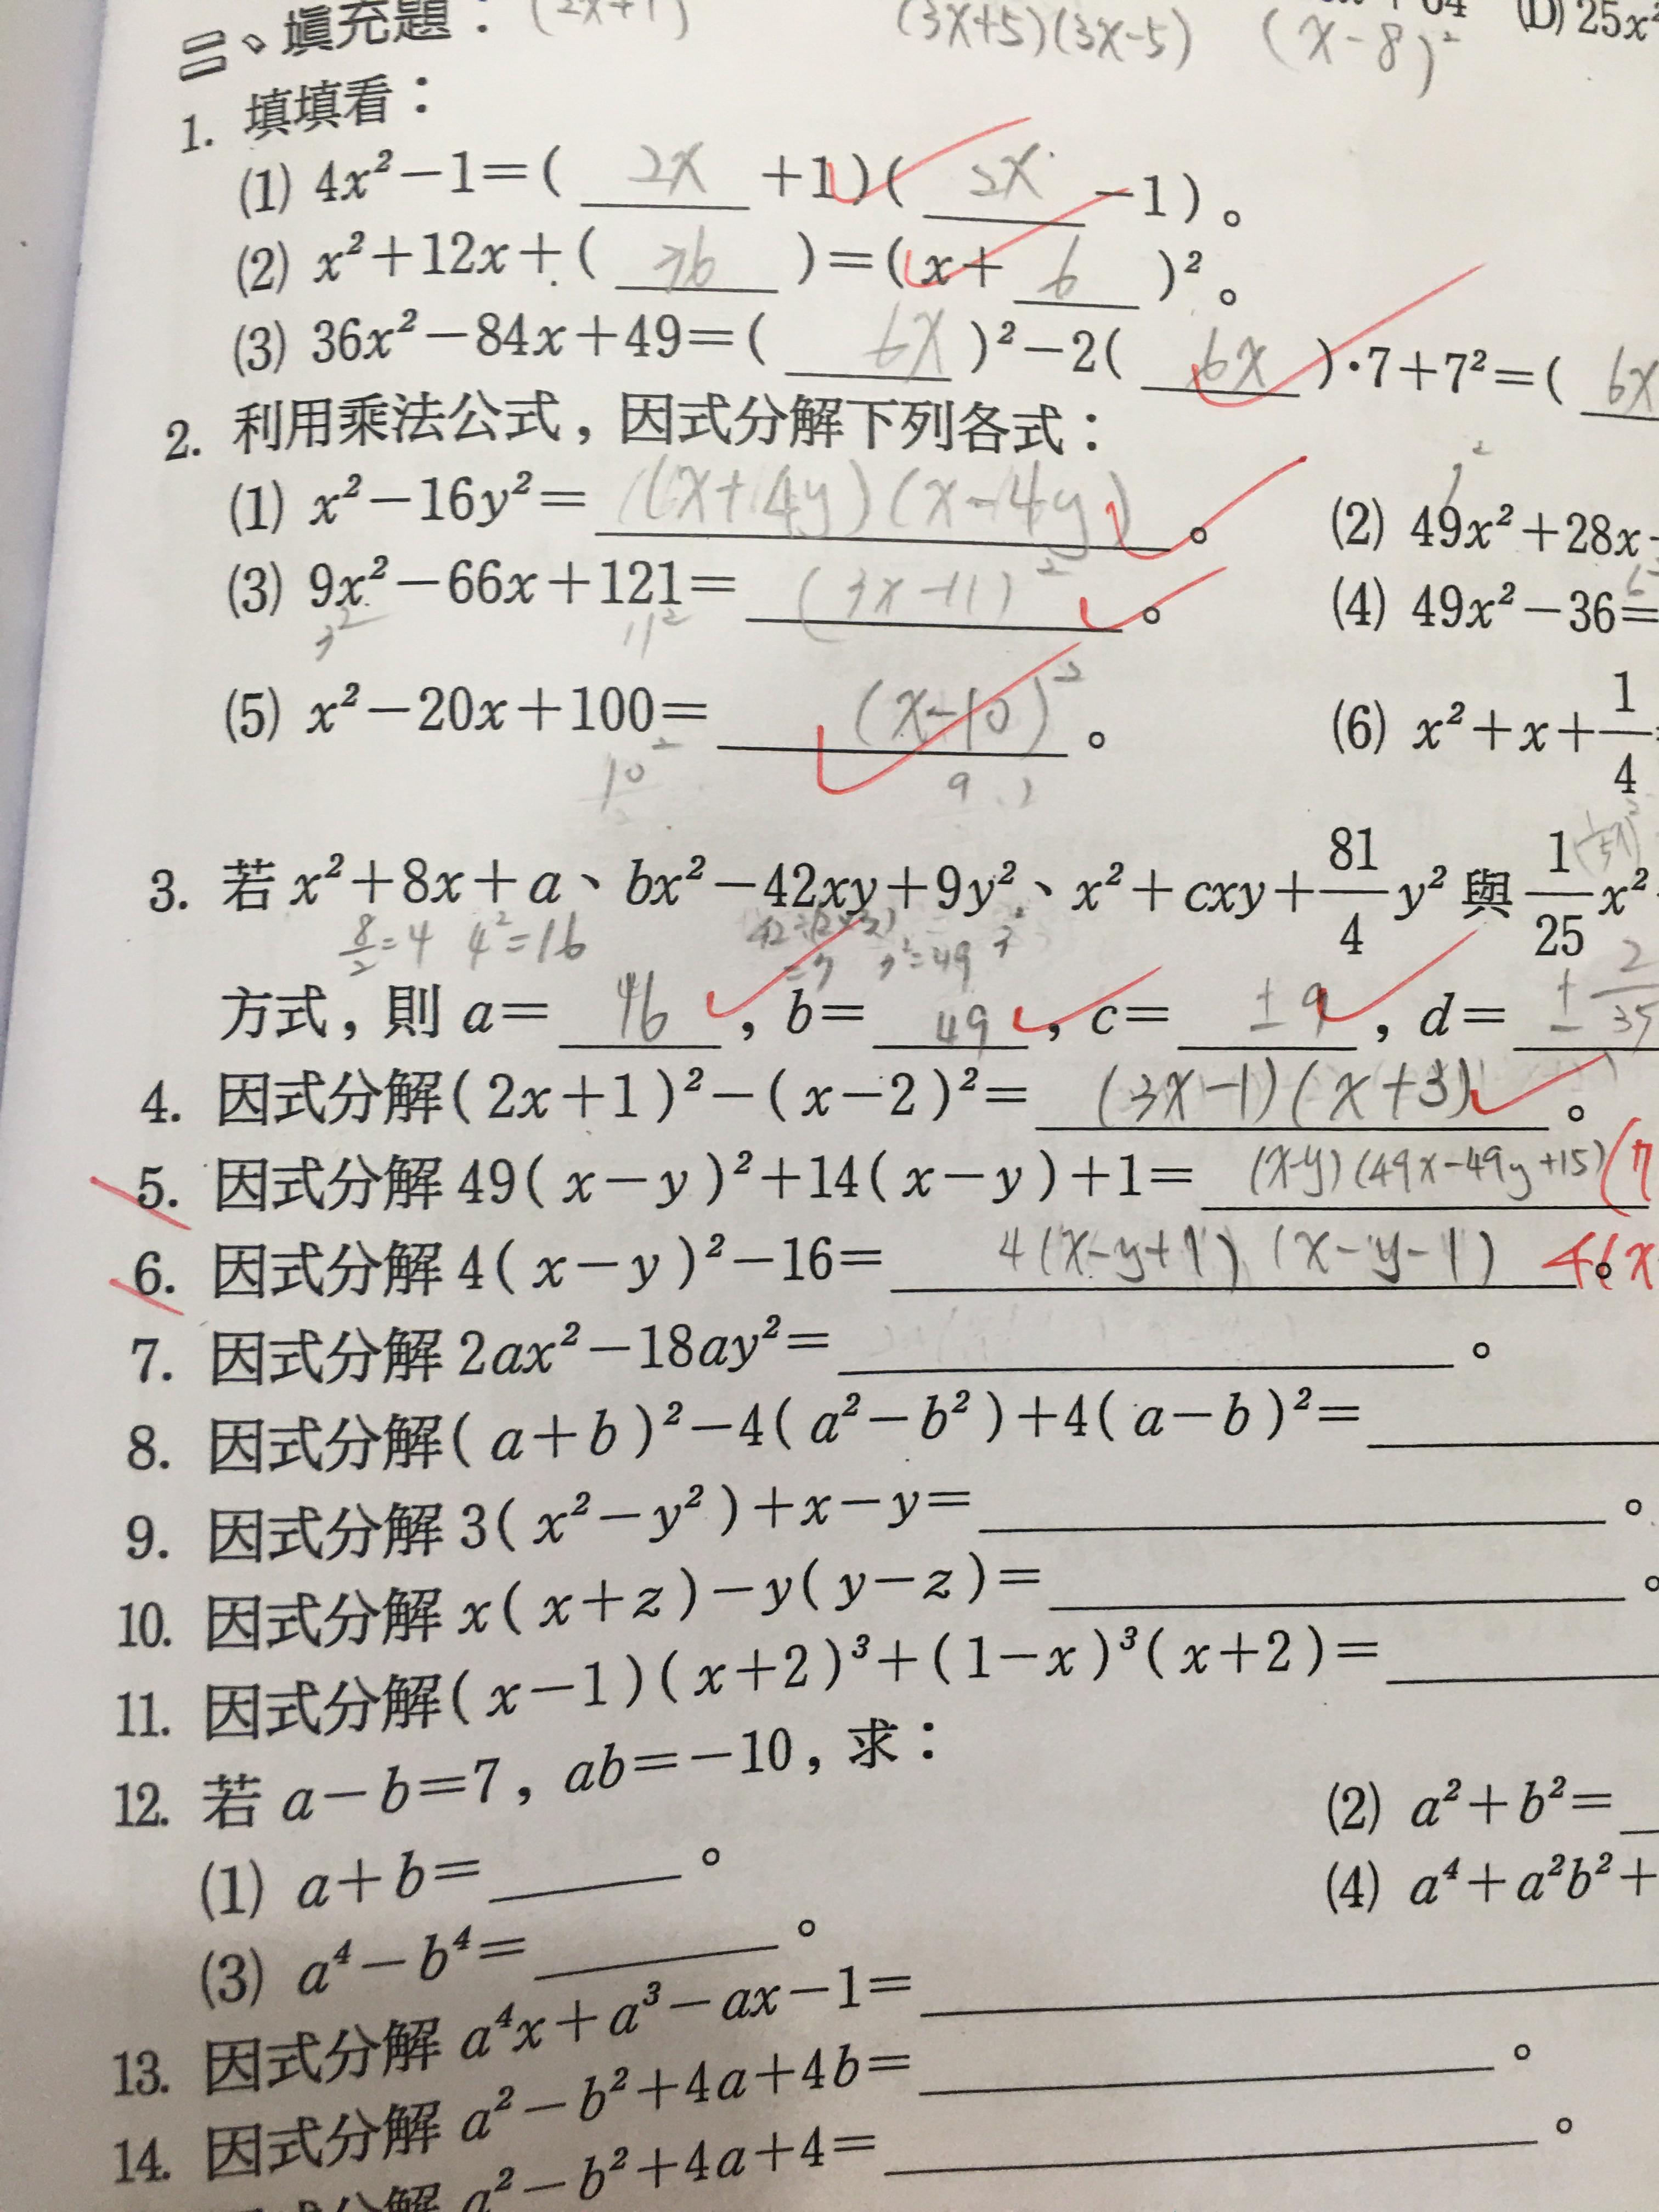 二、填充題： (2x+1) (3x+5)(3x-5) (x-8)² (D) 25x²
1. 填填看：
(1) 4x²-1=( 2x +1)( 2x -1)。
(2) x²+12x+( 36 )=(x+ 6 )²。
(3) 36x²-84x+49=( 6x )²-2( 6x )·7+7²=( 6x
2. 利用乘法公式，因式分解下列各式：
(1) x²-16y²= (x+4y)(x-4y)。 (2) 49x²+28x
(3) 9x²-66x+121= (3x-11)²。 (4) 49x²-36=
11²
(5) x²-20x+100= (x-10)²。 (6) x²+x+1/4
10²
3. 若 x²+8x+a、bx²-42xy+9y²、x²+cxy+81/4 y² 與 1/25 x²
8/2=4 4²=16 42÷(2×3) =7 7²=49
方式，則 a= 16 ，b= 49 ，c= ±9 ，d= ± 2/35
4. 因式分解(2x+1)²-(x-2)²= (3x-1)(x+3)。
5. 因式分解 49(x-y)²+14(x-y)+1= (x-y)(49x-49y+15) (7
6. 因式分解 4(x-y)²-16= 4(x-y+1)(x-y-1)。 4(x
7. 因式分解 2ax²-18ay²=。
8. 因式分解(a+b)²-4(a²-b²)+4(a-b)²=
9. 因式分解 3(x²-y²)+x-y=。
10. 因式分解 x(x+z)-y(y-z)=。
11. 因式分解(x-1)(x+2)³+(1-x)³(x+2)=
12. 若 a-b=7，ab=-10，求：
(1) a+b=。 (2) a²+b²=
(3) a⁴-b⁴=。 (4) a⁴+a²b²+
13. 因式分解 a⁴x+a³-ax-1=
14. 因式分解 a²-b²+4a+4b=。
因式分解 a²-b²+4a+4=。